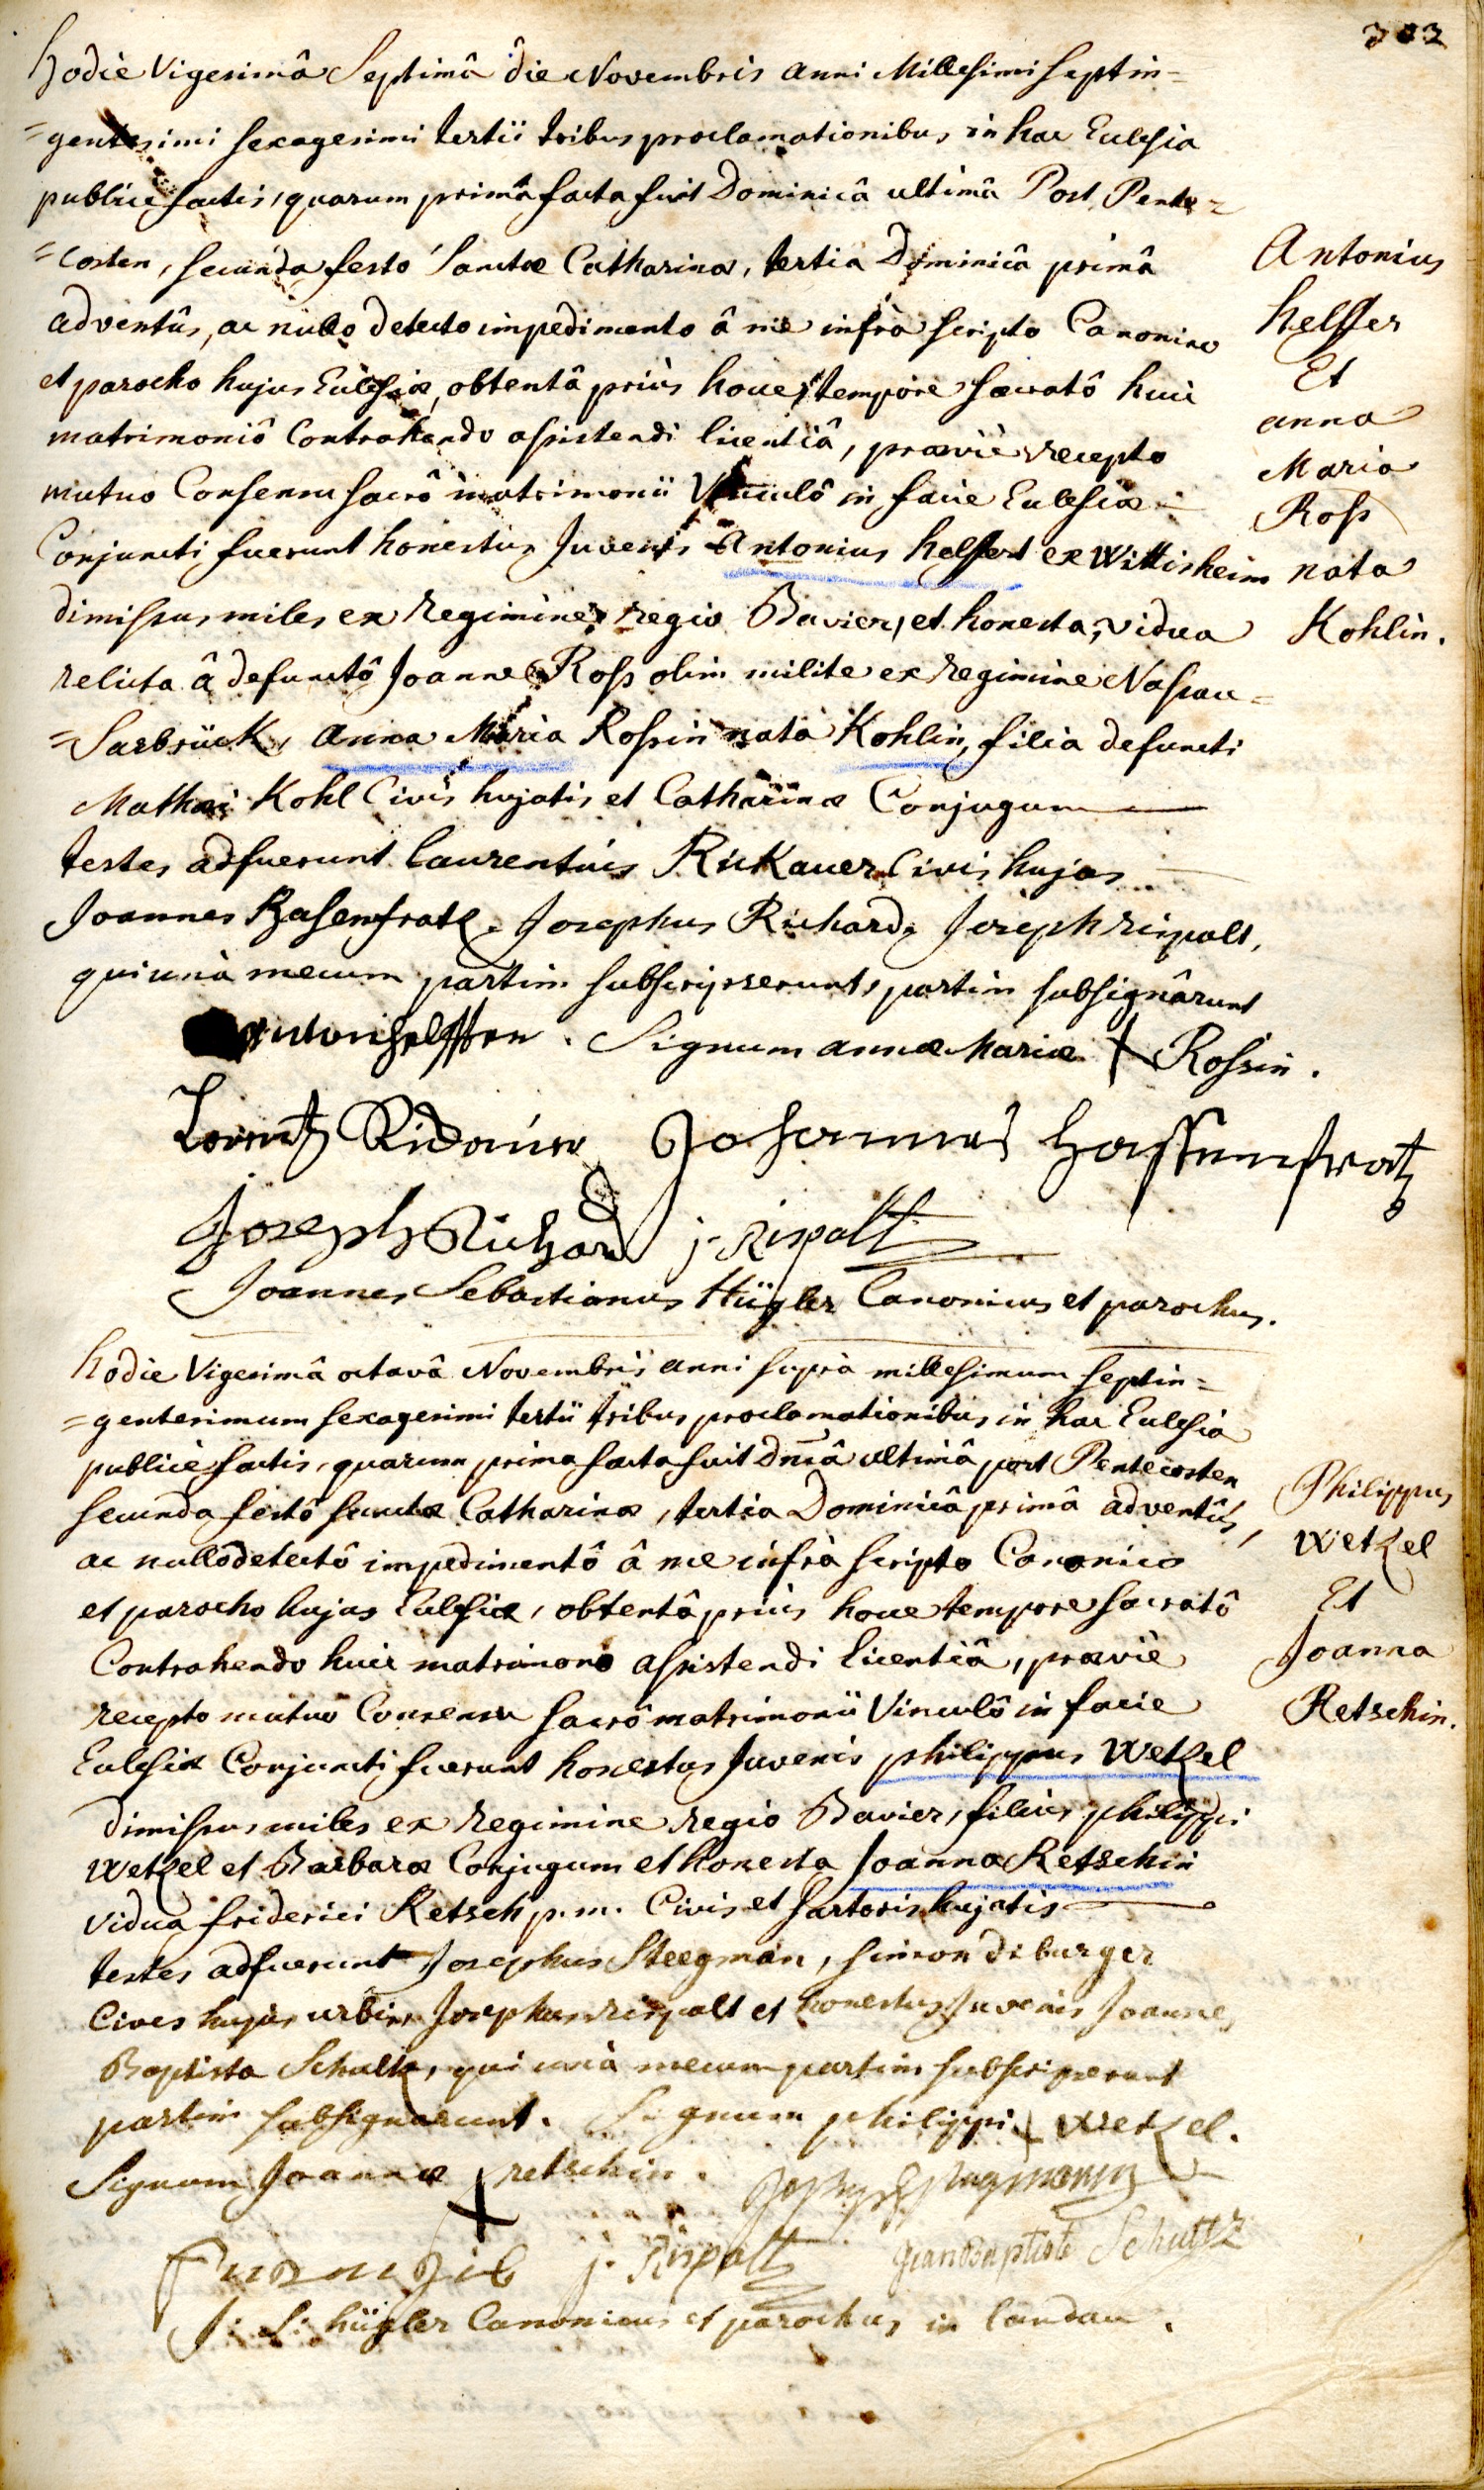 303
Hodie Vigesimâ Septimâ die Novembris anni Millesimi septin=
=gentesimi sexagesimi tertii tribus proclamationibus in hac Ecclesia
publice factis, quarum prima facta fuit Dominicâ ultimâ Post Pente=
=costen, secunda festo Sanctæ Catharinæ, tertia Dominicâ primâ
adventûs, ac nullo detecto impedimento â me infrà scripto Canonico
et parocho hujus Ecclesiæ, obtentâ priùs hoce tempore sacratô huic
matrimoniô Contrahendo assistendi licentiâ, præviè recepto
mutuo Consensu sacrô matrimonii Vinculô in facie Ecclesiæ
Conjuncti fuerunt honestus Juvenis Antonius helffert ex Wittisheim
dimissus miles ex Regimine regio Bavier, et honesta vidua
relicta â defunctô Joanne Ross olim milite ex regimine Nassau=
=Sarbrück, anna Maria Rossin nata Kohlin, filia defuncti
Mathæi Kohl Civis hujatis et Catharinæ Conjugum
testes adfuerunt laurentius Rickauer Civis hujas
Joannes Hasenfratz, Josephus Richard, Joseph rispalt,
qui unà mecum partim subscripserunt, partim subsignârunt
Antoni helffer. Signum annæ Mariæ + Rossin.
Lorentz Ridauer Johannes Hassenfratz
Joseph Richard j. Rispalt
Joannes Sebastianus Hügler Canonicus et parochus.
Antonius
helffer
Et
anna
Maria
Ross
nata
Kohlin.
hodie Vigesimâ octavâ Novembris anni suprà millesimum septin=
=gentesimum sexagesimi tertii tribus proclamationibus in hac Ecclesia
publicè factis, quarum prima facta fuit Dnicâ ultimâ post Pentecosten
secunda festô sanctæ Catharinæ, tertia Dominicâ primâ adventûs,
ac nullô detectô impedimentô â me infrà scripto Canonico
et parocho hujas Ecclesiæ, obtentâ priùs hoce tempore sacratô
Contrahendo huic matrimonio assistendi licentiâ, præviè
recepto mutuo Consensu sacrô matrimonii Vinculô in facie
Ecclesiæ Conjuncti fuerunt honestus Juvenis philippus Wetzel
dimissus miles ex regimine regio Bavier, filius philippi
Wetzel et Barbaræ Conjugum et honesta Joanna Retschin
vidua friderici Retsch p.m. Civis et sartoris hujatis
testes adfuerunt Josephus Steegman, simon diburger
Cives hujus urbis, Josephus rispalt et honestus Juvenis Joannes
Baptista Schultz, qui unà mecum partim subscripserunt
partim subsignarunt. Signum philippi + Wetzel.
Signum Joannæ + retschin.
j. Rispalt Jean Baptiste Schultz
J: S: hügler Canonicus et parochus in landau.
Philippus
Wetzel
Et
Joanna
Retschin.